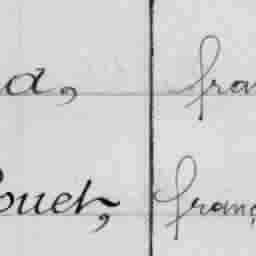 a, fra
ouet, franç